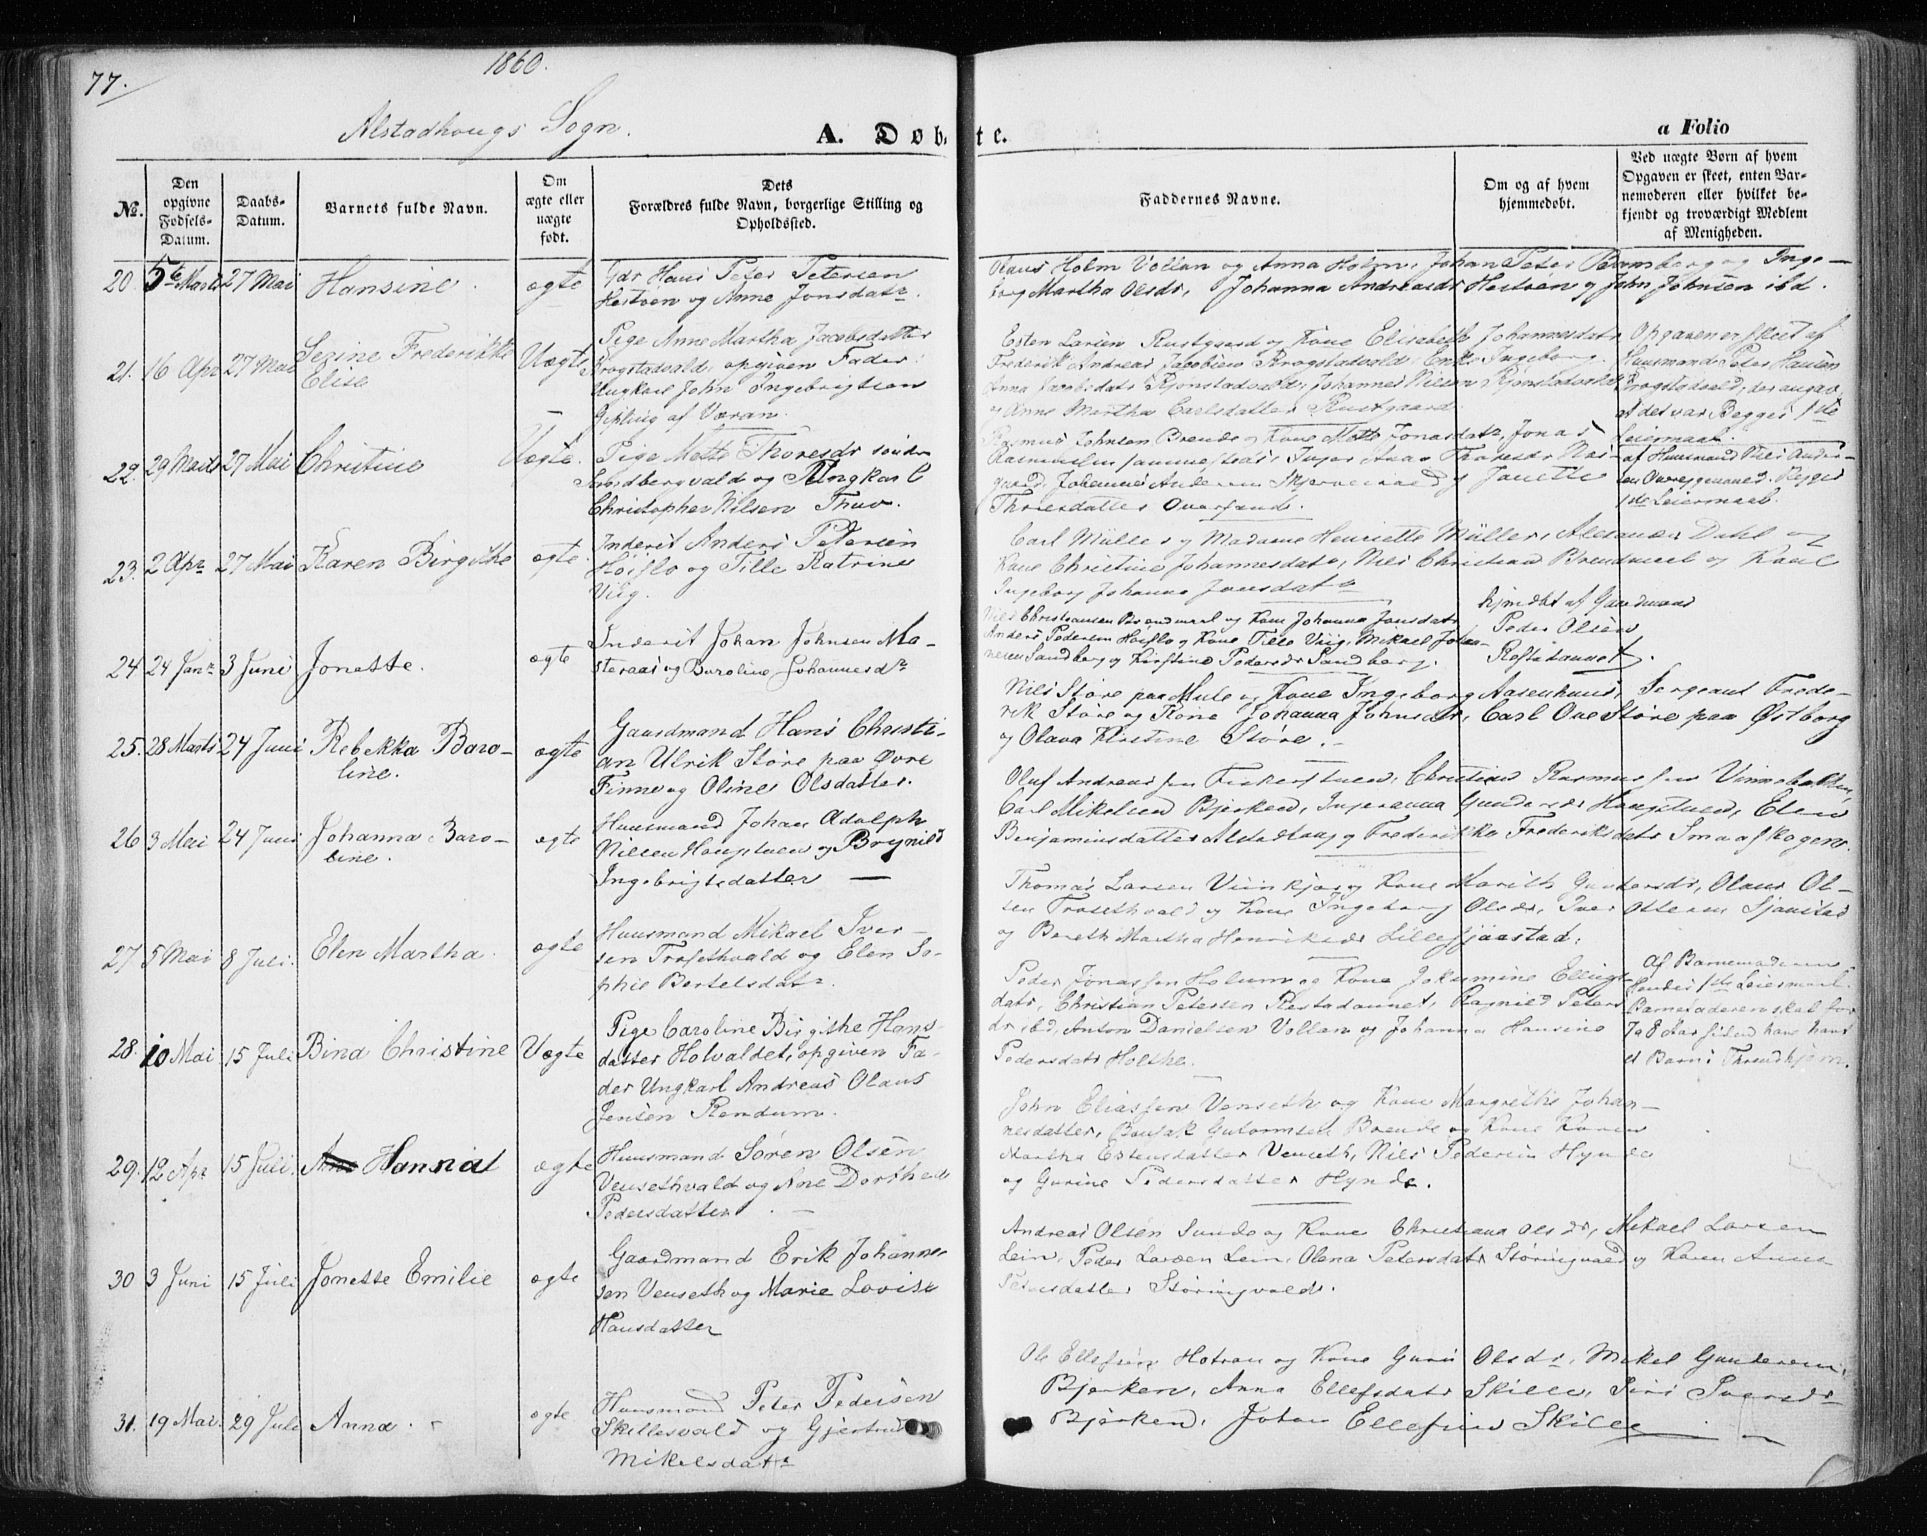 77.
1860.
Alstadhougs Sogn.
A. Døbte.
a Folio
No.
Den opgivne Fødsels-Datum.
Daabs-Datum.
Barnets fulde Navn.
Om ægte eller uægte født.
Dets Forældres fulde Navn, borgerlige Stilling og Opholdssted.
Faddernes Navne.
Om og af hvem hjemmedøbt.
Ved uægte Børn af hvem Opgaven er skeet, enten Barnemoderen eller hvilket bekjendt og troværdigt Medlem af Menigheden.
20. 5te Marts 27 Mai Hansine. ægte
Gdr Hans Peter Petersen
Hestven og Anne Jonsdatr.
Olaus Holm Vollan og Anna Holm, Johan Peter Bamberg og Inge-
borg Martha Olsdr, Johanna Andreasdr Hestven og John Johnsen ibd.
21. 16 Apr 27 Mai Sezine Frederikke
Elise
Uægte
Pige Anne Martha Jacobsdatter
Krogstadvald, opgiven Fader:
Ungkarl John Ingebrigtsen
Gipling af Væran.
Esten Larsen Rustgaard og Kone Elisabeth Johannesdatr
Frederik Andreas Jacobsen Krogstadvald, Enke Ingeborg
og Anne Martha Carlsdatter Rustgaard
Opgaven er skeet af
Huusmand Peter Hansen
Krogstadvald, der angav
at det var Begges 1ste
Leiermaal.
22. 29 Marts 27 Mai Christine Uægte.
Pige Mette Thoresdr søndre
Sandbergvald og Ungkarl
Christopher Nilsen Thuv.
Rasmus Johnsen Brende og Kone Mette Jonasdatr, Jonas
Thoresdatter Oversande.
af Huusmand Nils Ander-
1ste Leiermaal.
23. 2 Apr 27 Mai Karen Birgithe ægte
Inderst Anders Petersen
Høiflo og Tille Katrine
Viig.
Carl Müller og Madame Henriette Müller, Alexander Dahl og
Kone Christine Johannesdatr, Nils Christian Brendmoel og Kone
Ingeborg Johanna Jonsdatr
24. 24 Janr 3 Juni Jonette. ægte
Inderst Johan Johnsen Mo-
steraas og Baroline Johannesdr
Nils Christiansen Brendmoel og Kone Johanna Jonsdatr
Anders Pedersen Høiflo og Kone Tille Viig, Mikael Johan-
nesen Sandberg og Kirstine Pedersdr Sandberg.
hjmdøbt af Gaardmand
Peder Olsen
Rostadaunet.
25. 28 Marts 24 Juni Rebekka Baro-
line.
ægte
Gaardmand Hans Christi-
an Ulrik Støre paa Øvre
Finne og Oline Olsdatter.
Nils Støre paa Mule og Kone Ingeborg Aasenhuus, Sergeant Frede-
rik Støre og Kone Johanna Johnsdr, Carl Ove Støre paa Østborg
og Olava Kirstine Støre.
26 3 Mai 24 Juni Johanna Baro-
line.
ægte
Huusmand Johan Adolph
Nilsen Hougtuen og Brynild
Ingebrigtsdatter
Oluf Andreassen Fiskerstuen, Christian Rasmussen Vinnebakken,
Carl Mikelsen Bjerken, Ingeranna Gundersdr Hougstuen, Elen
Benjaminsdatter Alstadhoug og Frederikke Frederiksdatr Smaaskogen.
27 5 Mai 8 Juli. Elen Martha. ægte
Huusmand Mikael Iver-
sen Trosethvald og Elen So-
phie Bertelsdatr.
Thomas Larsen Viinkjær og Kone Marith Gundersdr, Olaus Ol-
sen Trosethvald og Kone Ingeborg Olsdr, Iver Ottersen Sjaastad
og Bereth Martha Henriksdr Lillesjaastad.
28. 10 Mai 15 Juli Bina Christine Uægte
Pige Caroline Birgithe Hans-
datter Holvaldet, opgiven Fa-
der Ungkarl Andreas Olaus
Jensen Rendum.
Peder Jonassen Holum og Kone Jokumine Ellings-
datr, Christian Petersen Rostadaunet, Ragnild Peters-
dr ibd, Anton Danielsen Vollan og Johanna Hansine
Pedersdatr Holthe.
Af Barnemoderen
hendes 1ste Leiermaal.
Barnefaderen skal for
7 a 8 Aar siden have havt
et Barn i Throndhjem.
29. 12 Apr 15 Juli. Hanna ægte
Huusmand Søren Olsen
Vensethvald og Ane Dorthea
Pedersdatter.
John Eliassen Venseth og Kone Margrethe Johan-
nesdatter, Benjak Guttormsen Brende og Kone Karen
Martha Estensdatter Venseth, Nils Pedersen Hynde
og Gurine Pedersdatter Hynde.
30 3 Juni 15 Juli Jonette Emilie ægte
Gaardmand Erik Johanne-
sen Venseth og Marie Lovise
Hansdatter
Andreas Olsen Sunde og Kone Christiana Olsdr, Mikael Larsen
Lein, Peder Larsen Lein, Olena Petersdatr Størringvald og Karen Anna
Petersdatter Størringvald.
31. 19 Mai. 29 Juli Anna. ægte
Huusmand Peter Pedersen
Skillesvald og Gjertrud
Mikelsdatr
Ole Ellefsen Hotran og Kone Guru Olsdr, Mikel Gundersen
Bjerken, Anna Ellefsdatr Skille, Siri
Bjerken, Johan Ellefsen Skille